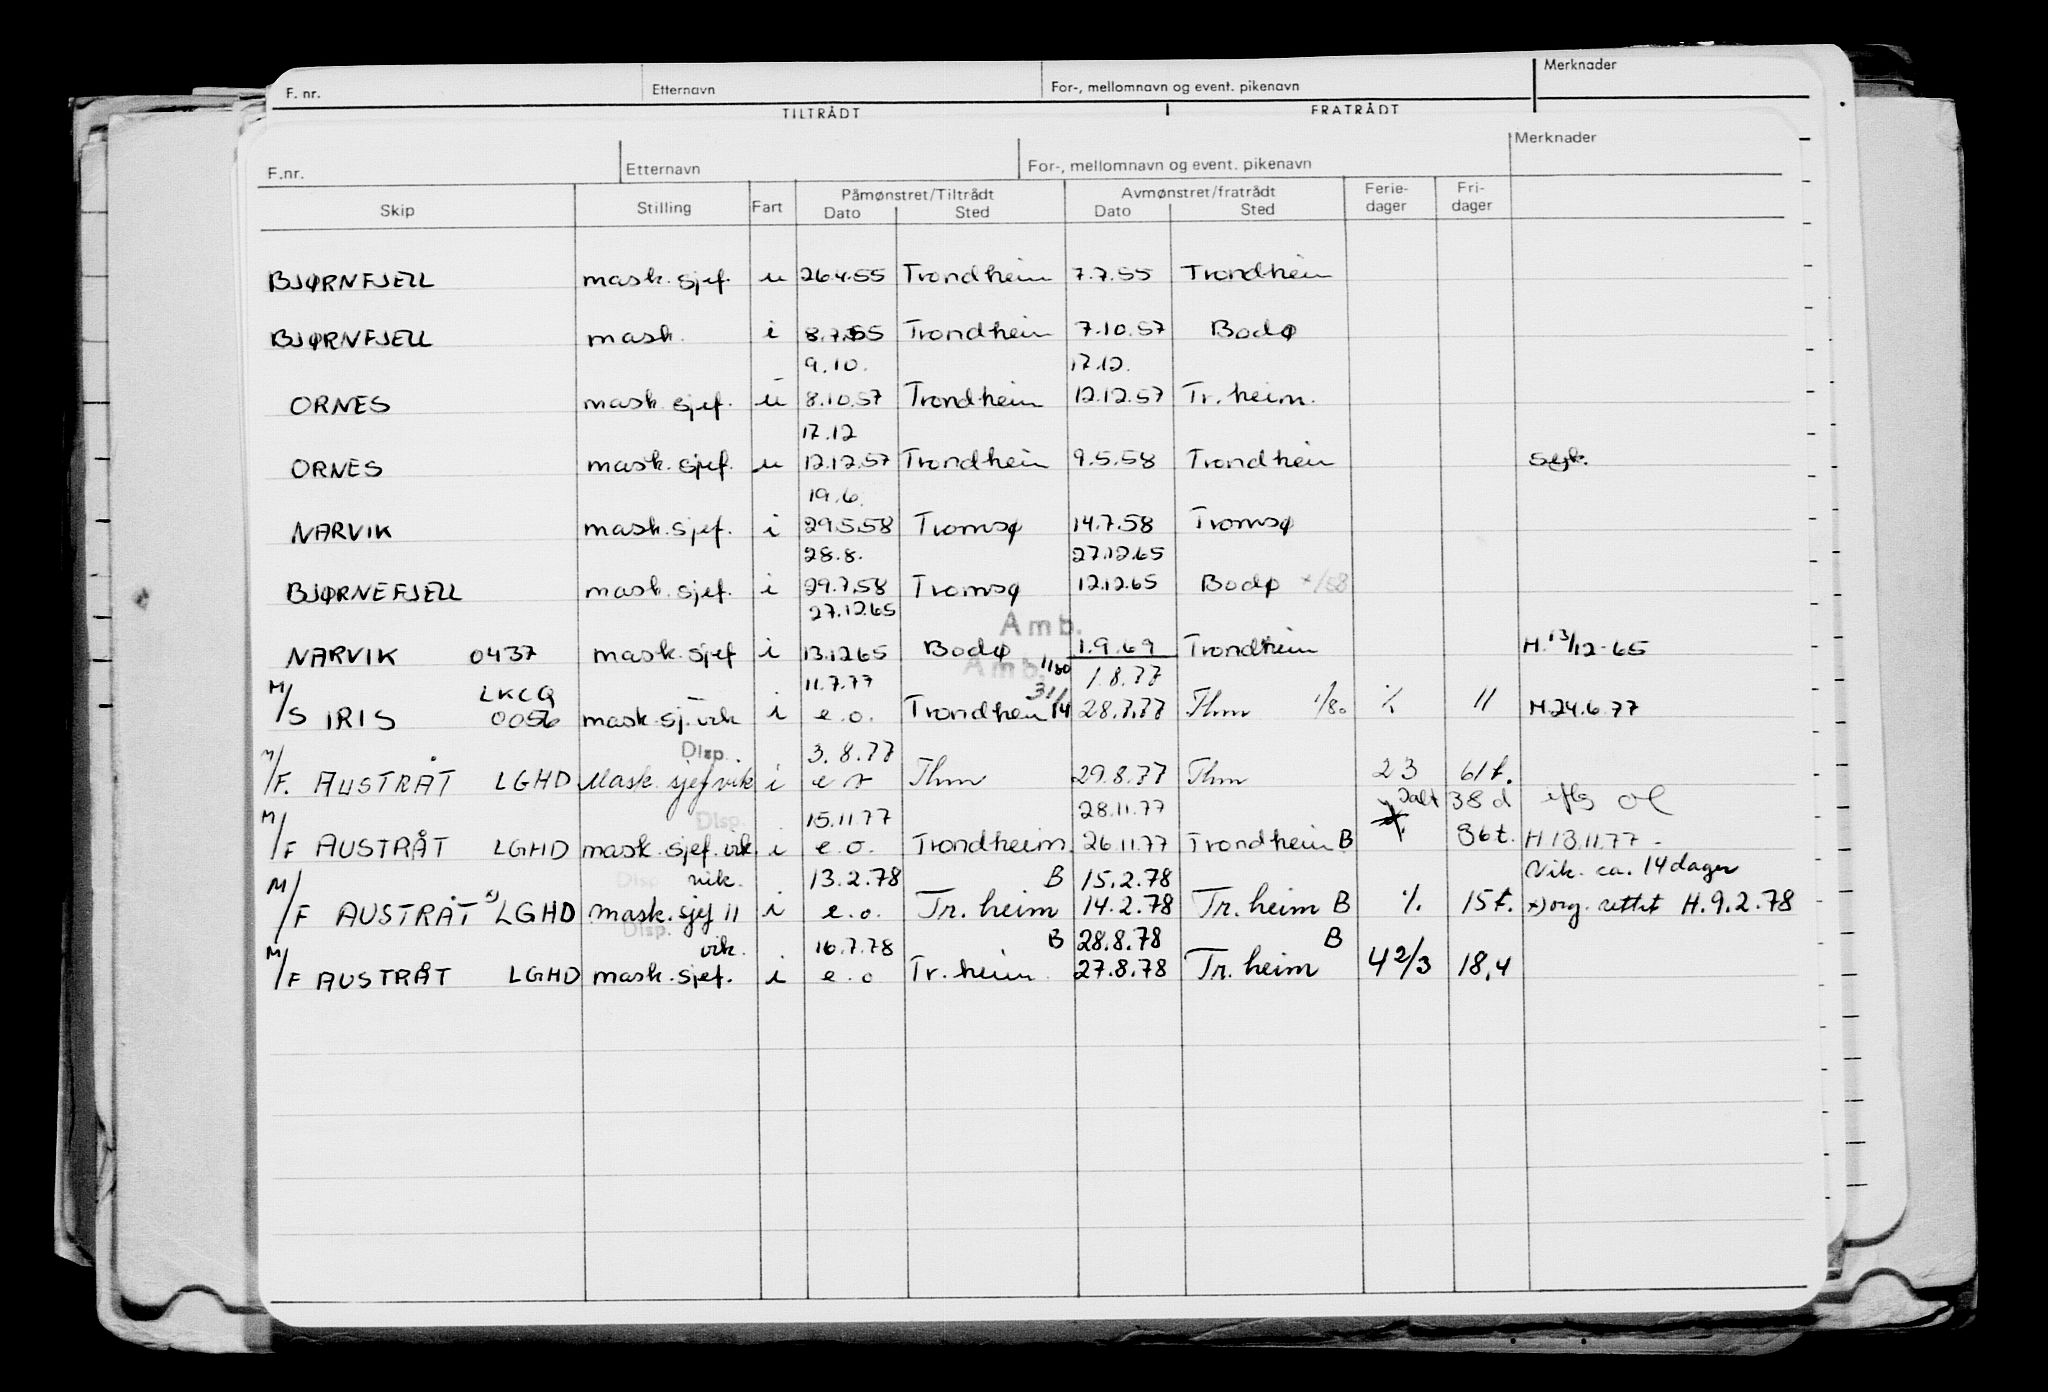 F. nr. Etternavn For-, mellomnavn og event. pikenavn Merknader
TILTRÅDT FRATRÅDT
F.nr. Etternavn For-, mellomnavn og event. pikenavn Merknader
Skip Stilling Fart Påmønstret/Tiltrådt Avmønstret/fratrådt Ferie-dager Fri-dager
Dato Sted Dato Sted
BJØRNFJELL mask.sjef. u 26.4.55 Trondheim 7.7.55 Trondheim
BJØRNFJELL mask. i 8.7.55 Trondheim 7.10.57 Bodø
9.10. 17.12.
ORNES mask.sjef. u 8.10.57 Trondheim 12.12.57 Tr.heim.
17.12
ORNES mask.sjef. u 12.12.57 Trondheim 9.5.58 Trondheim syk.
19.6.
NARVIK mask.sjef. i 29.5.58 Tromsø 14.7.58 Tromsø
28.8. 27.12.65
BJØRNEFJELL mask.sjef. i 29.7.58 Tromsø 12.12.65 Bodø
27.12.65 Amb.
NARVIK 0437 mask.sjef i 13.12.65 Bodø 1.9.69 Trondheim H. 13/12-65
Amb. 1/80
LKCQ 11.7.77 1.8.77
M/S IRIS 0056 mask.sj. vik i e.o. 28.7.77 Thm 1/80 % 11 H.24.6.77
Disp. 3.8.77
M/F. AUSTRÅT LGHD Mask.sjef vik i e o Thm 29.8.77 Thm 23 61 t.
Disp. 15.11.77 28.11.77 Ialt 38 d
M/F AUSTRÅT LGHD mask.sjef.vik. i e.o. Trondheim 26.11.77 Trondheim B 36t. H 13.11.77.
Disp vik. 13.2.78 B 15.2.78 Vik. ca. 14 dager
M/F AUSTRÅT x) LGHD mask.sjef 11 i e.o. Tr.heim 14.2.78 Tr.heim B % 15t. x) org. rettet H.9.2.78
Disp. vik. 16.7.78 B 28.8.78 B
M/F AUSTRÅT LGHD mask.sjef. i e.o Tr.heim 27.8.78 Tr.heim 4 2/3 18,4